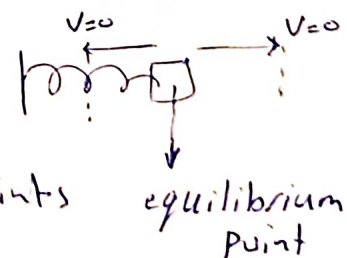 V=0 V=0
ints equilibrium
point